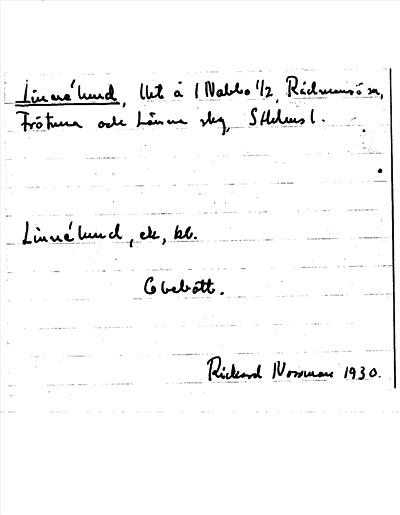 Linnélund, lht å 1 Nabbo 1/2, Rådmansö sn,
Frötuna och Länna skg, Sthlms l.
Linnélund, ek, kb.
Obebott.
Rickard Norrman 1930.